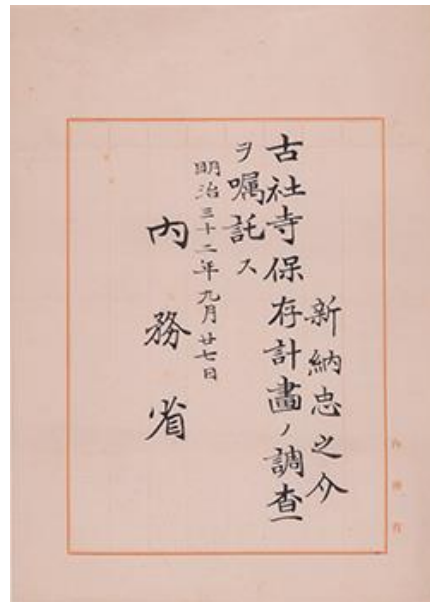 新納忠之介
古社寺保存計畫ノ調査
ヲ嘱託ス
明治三十二年九月廿七日
内務省